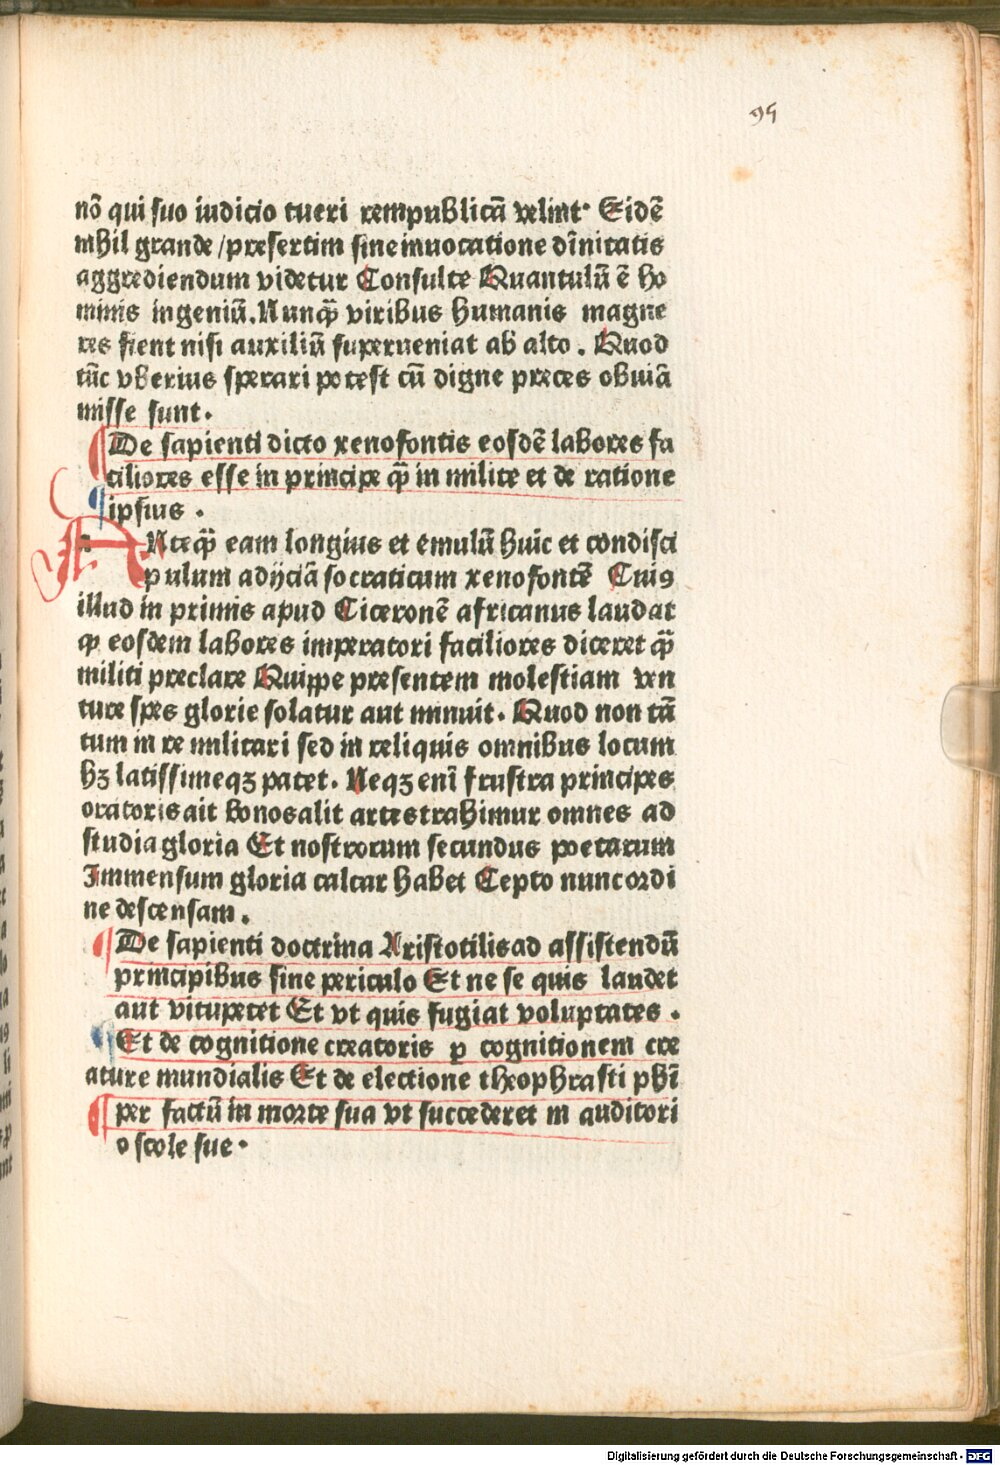 95
nō qui suo iudicio tueri rempublicā velint· Eidē
nihil grande /presertim sine inuocatione dīnitatis
aggrediendum videtur Consulte Quantulū ē ho
minis ingeniū. Nunꝙ̄ viribus humanis magne
res fient nisi auxiliū superueniat ab alto. Quod
tūc vberius sperari potest cū digne preces obuiā
misse sunt.
¶ De sapienti dicto xenofontis eosdē labores fa
ciliores esse in principe ꝙ̄ in milite et de ratione
¶ ipsius .
ANteꝙ̄ eam longius et emulū huic et condisci
pulum adijciā socraticum xenofontē Cuiꝯ
illud in primis apud Ciceronē africanus laudat
ꝙ eosdem labores imperatori faciliores diceret ꝙ̄
militi preclare Quippe presentem molestiam ven
ture spes glorie solatur aut minuit. Quod non tā
tum in re militari sed in reliquis omnibus locum
hꝫ latissimeqꝫ patet. Neqꝫ enī frustra principes
oratoris ait bonos alit artes trahimur omnes ad
studia gloria Et nostrorum secundus poetarum
Immensum gloria calcar habet Cepto nunc ordi
ne descensam .
¶ De sapienti doctrina Aristotilis ad assistendū
principibus sine periculo Et ne se quis laudet
aut vitupetet Et vt quis fugiat voluptates .
¶ Et de cognitione creatoris ꝑ cognitionem cre
ature mundialis Et de electione theophrasti phī
¶ per factū in morte sua vt succederet in auditori
o scole sue·
Digitalisierung gefördert durch die Deutsche Forschungsgemeinschaft - DFG